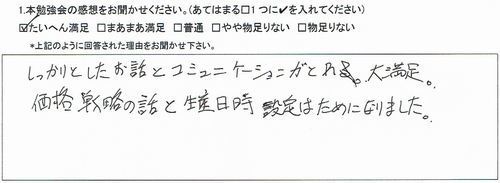 1.本勉強会の感想をお聞かせください。(あてはまる□1つに✔を入れてください)
☑たいへん満足 □まあまあ満足 □普通 □やや物足りない □物足りない
*上記のように回答された理由をお聞かせ下さい。
しっかりとしたお話とコミュニケーションがとれる。大満足。
価格戦略の話と生産日時設定はためになりました。